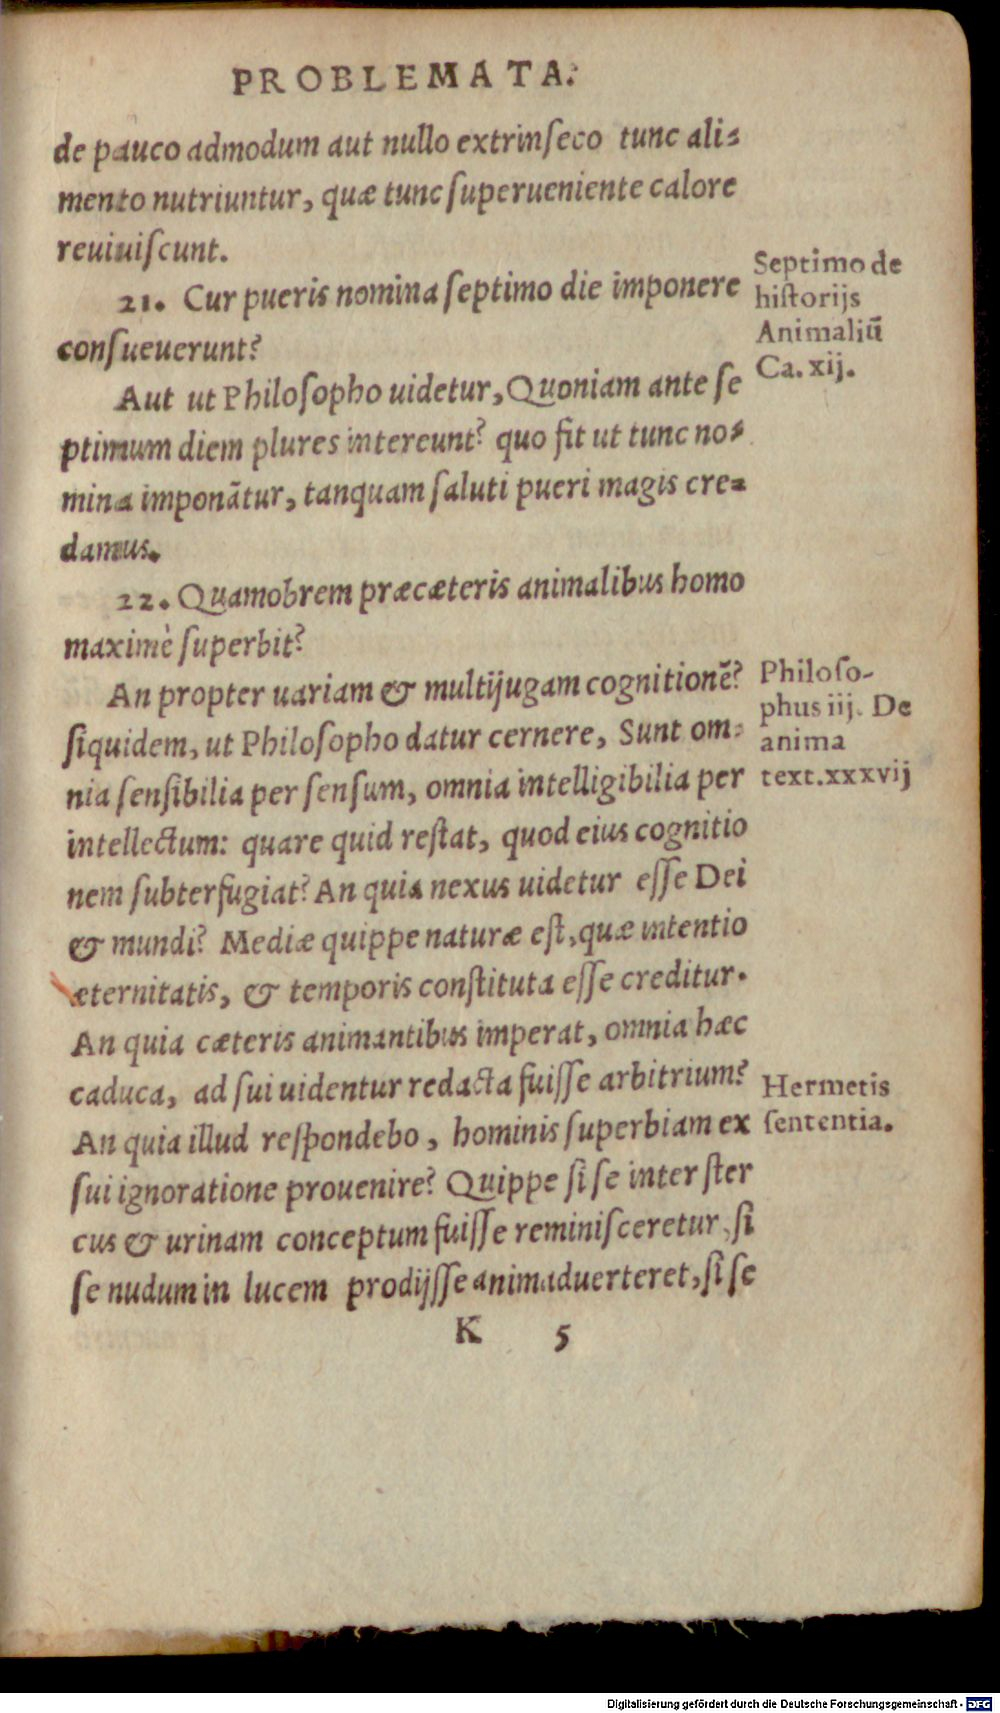 PROBLEMATA.
de pauco admodum aut nullo extrinſeco tunc ali-
mento nutriuntur, quæ tunc ſuperueniente calore
reuiuiſcunt.
21. Cur pueris nomina ſeptimo die imponere
conſueuerunt?
Septimo de
hiſtorijs
Animaliū
Ca. xij.
Aut ut Philoſopho uidetur, Quoniam ante ſe
ptimum diem plures intereunt? quo fit ut tunc no-
mina imponātur, tanquam ſaluti pueri magis cre-
damus.
22. Quamobrem præcæteris animalibus homo
maximè ſuperbit?
An propter uariam & multijugam cognitionē?
ſiquidem, ut Philoſopho datur cernere, Sunt om-
nia ſenſibilia per ſenſum, omnia intelligibilia per
Philoſo-
phus iij. De
anima
text.xxxvij
intellectum: quare quid reſtat, quod eius cognitio
nem ſubterfugiat? An quia nexus uidetur eſſe Dei
& mundi? Mediæ quippe naturæ eſt, quæ intentio
æternitatis, & temporis conſtituta eſſe creditur.
An quia cæteris animantibus imperat, omnia hæc
caduca, ad ſui uidentur redacta fuiſſe arbitrium?
An quia illud reſpondebo, hominis ſuperbiam ex
Hermetis
ſententia.
ſui ignoratione prouenire? Quippe ſi ſe inter ſter
cus & urinam conceptum fuiſſe reminiſceretur, ſi
ſe nudum in lucem prodijſſe animaduerteret, ſi ſe
K 5
Digitalisierung gefördert durch die Deutsche Forschungsgemeinschaft - DFG